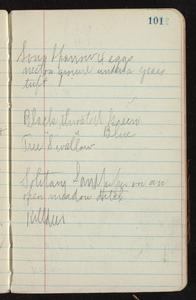 101
Song Sparrow's eggs
nest on ground under a grass
tuft
Black throated Green
" " Blue
Tree Swallow
Solitary Sandpiper on an
open meadow
Killdeer